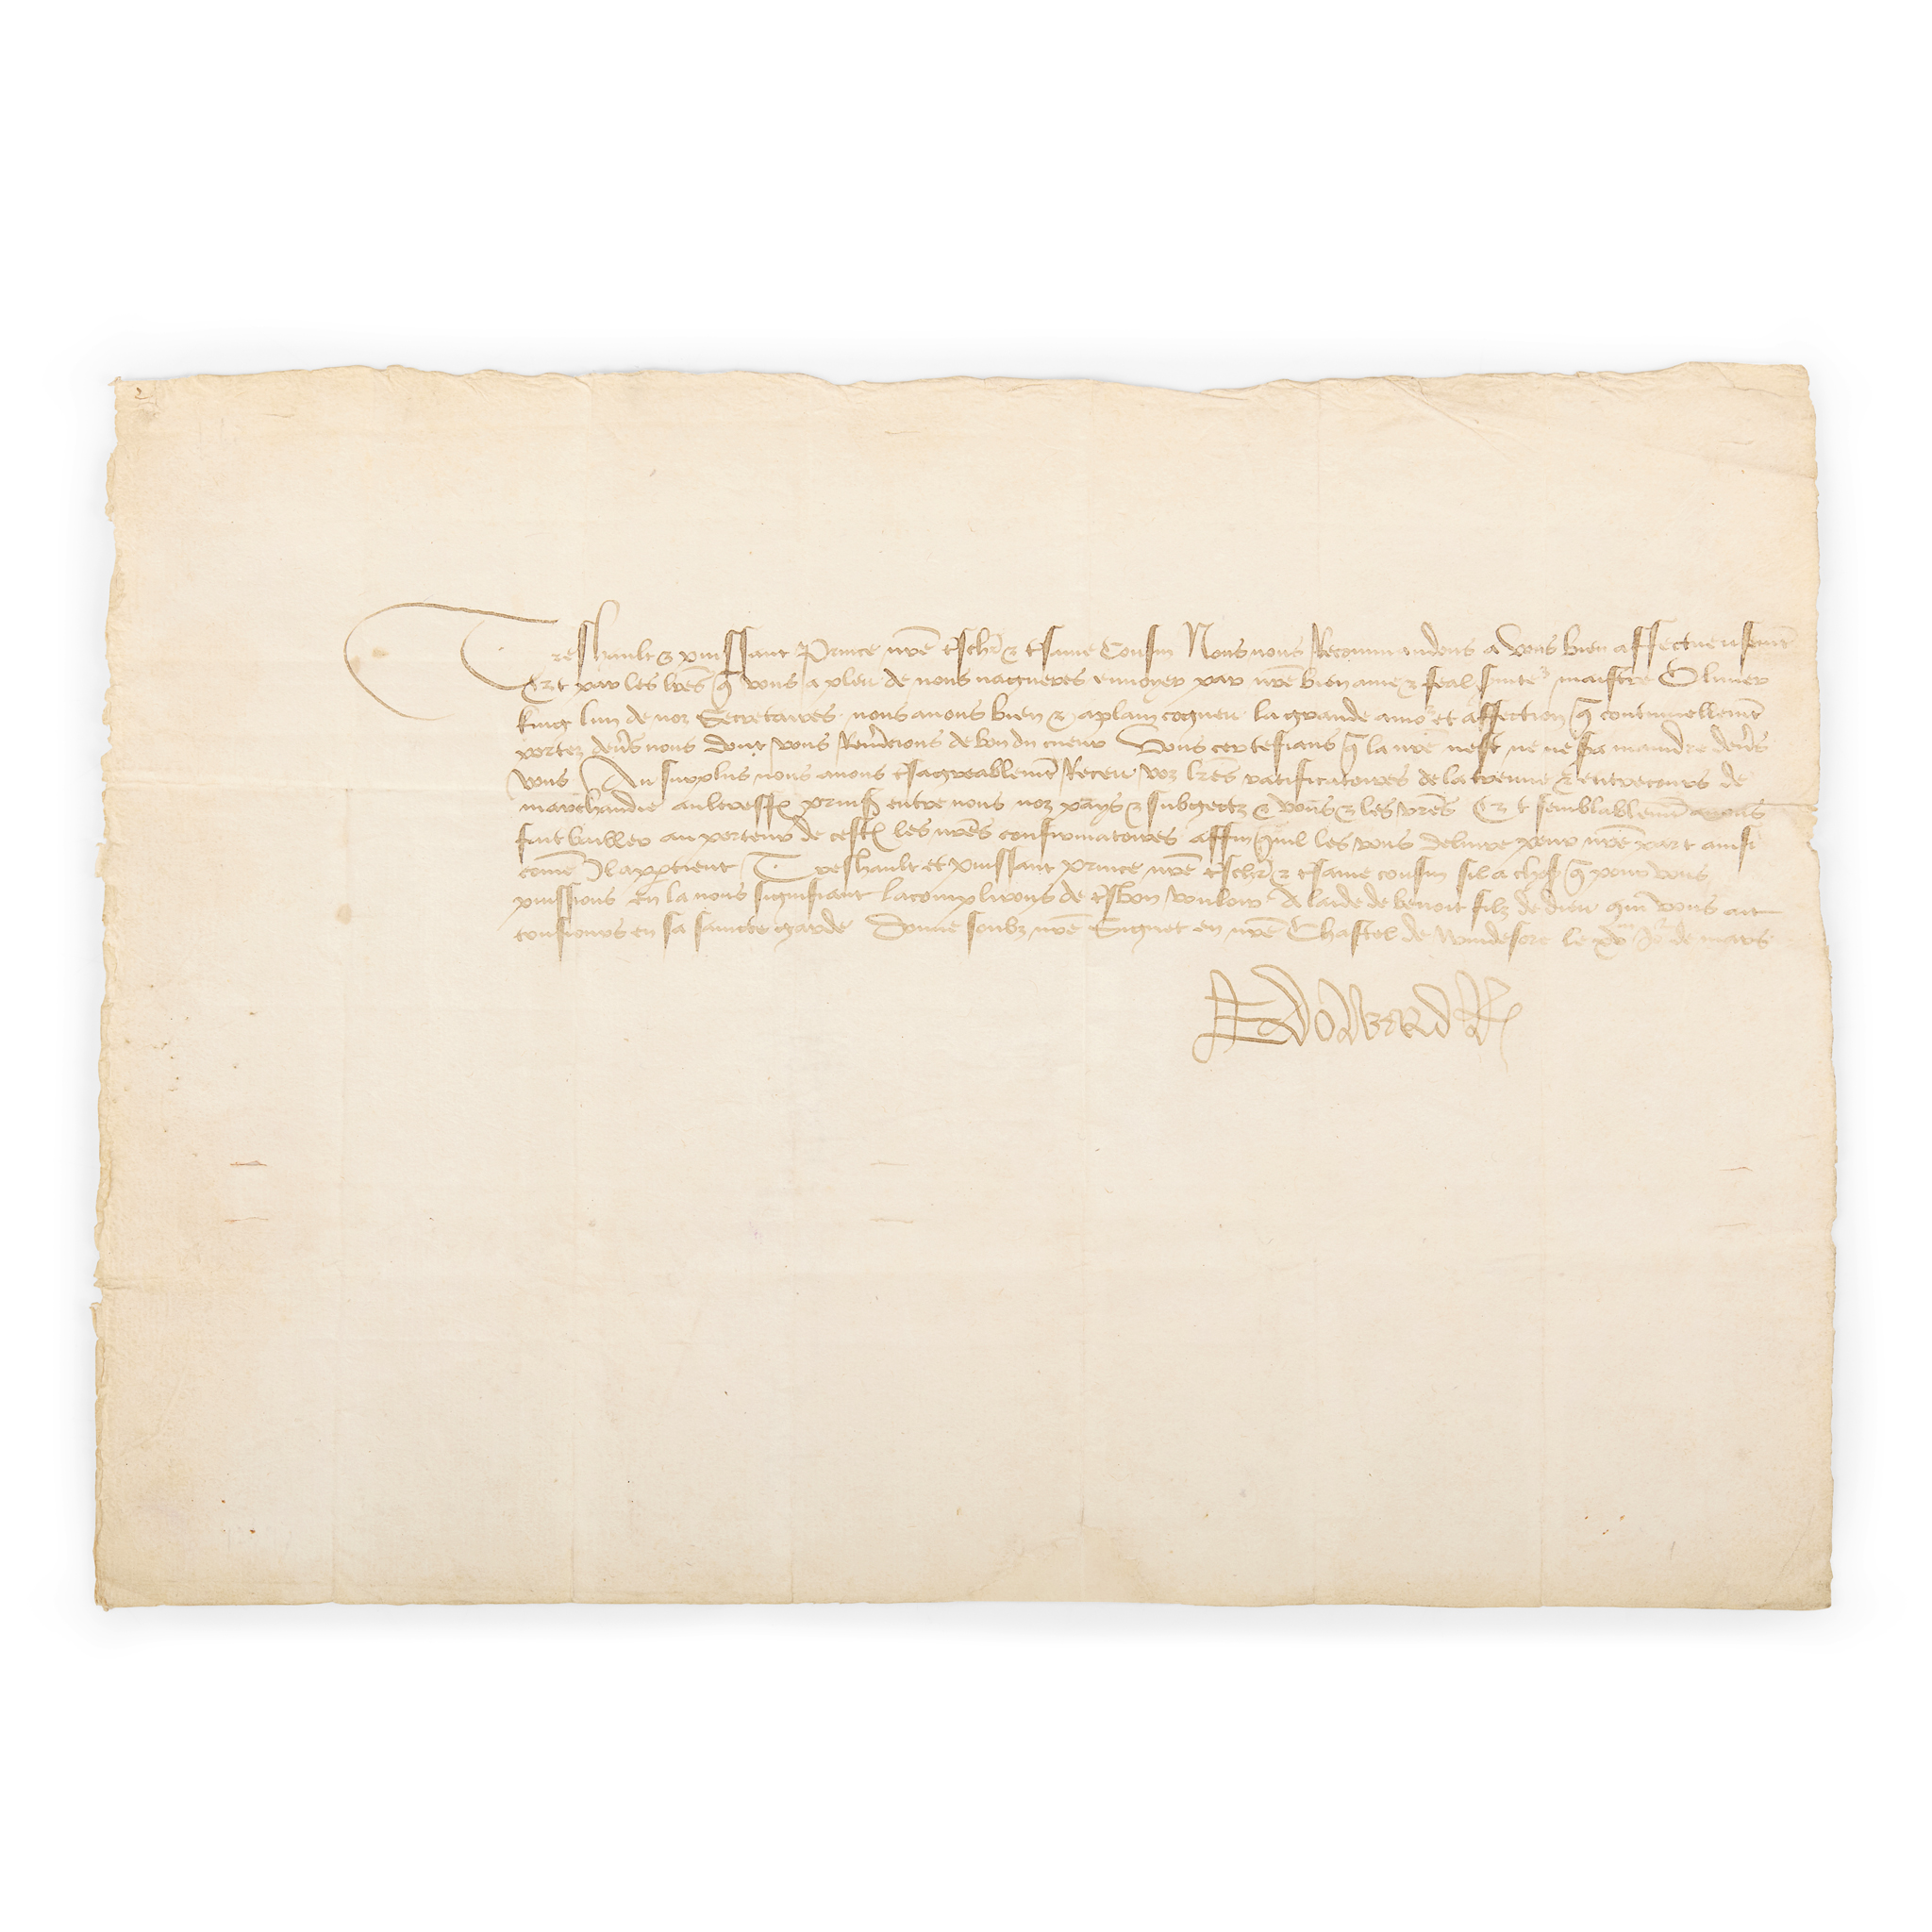 2
Treshault & puissant Prince nr̄e tsch̄r & tsame Cousin Nous nous Recommandons a vous bien affectueusem̄t
Et par les lr̄es q̄ vous a pleu de nous nagueres envoyer par nr̄e bien ame & feal maistre Oliuer
king lun de noz Secretaires nous auons bien & aplain cogneu la grande amor et affection q̄ continuellem̄t
portez deu̓s nous dont vous Rem̓cions de bon du cueur Vous certefians q̄ la nr̄e nest ne ne sa maindre deu̓s
vous Au surplus nous auons tsagreablem̄t Receu voz lr̄es ratificatoires de la treuue & entrecours de
marchandie prinse entre nous noz pays & subgectz & vous & les vr̄es Et semblablem̄t auons
fait bailler au porteur de cestes les nr̄es confirmatoires affin quil les vous deliure pour nr̄e part ainsi
com̄e Il appartient Treshault et puissant prince nr̄e tsch̄r & tsame cousin sil a chose q̄ pour vous
puissions en la nous signifiant lacomplirons de tsbon vouloir A laide de benoit filz de dieu qui vous ait
tousiours en sa saincte garde Donne soubz nr̄e Signet en nr̄e Chastel de Windesore le xve Jor de mars
Edward R